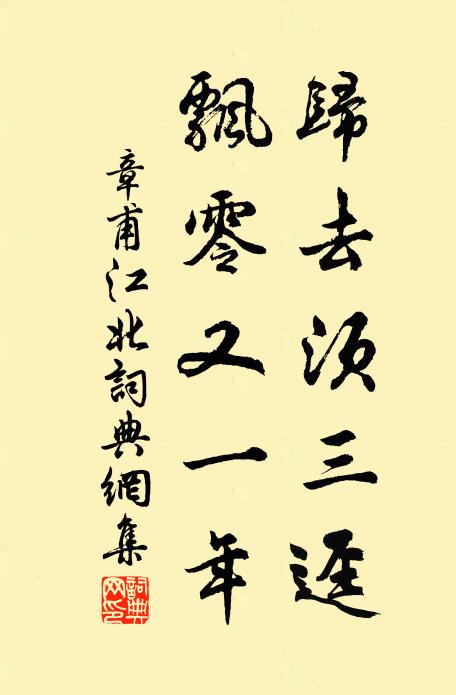 歸去須三逕
飄零又一年
章甫江北詞典網集
詞典
网印